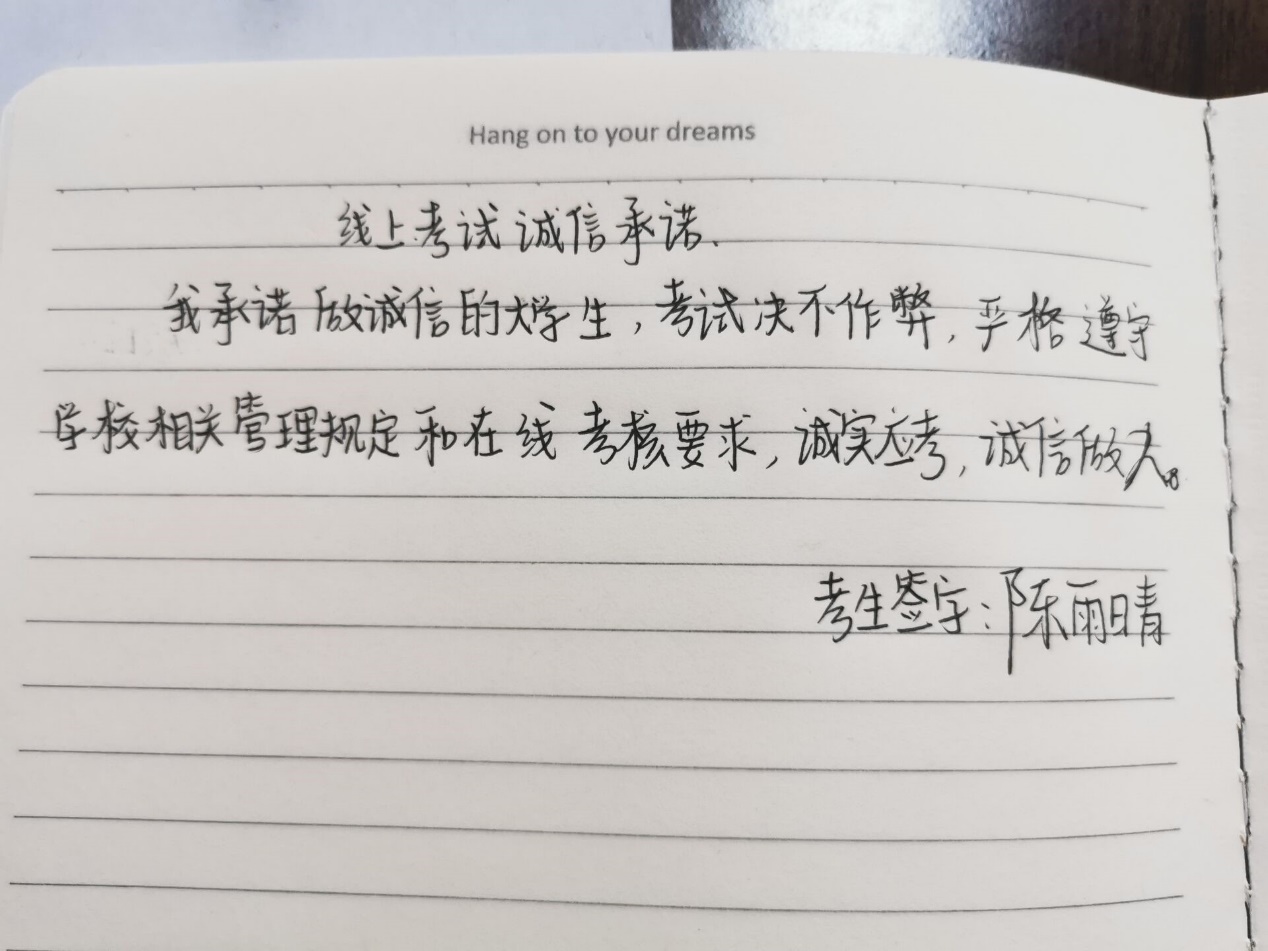 Hang on to your dreams
线上考试诚信承诺.
我承诺做诚信的大学生,考试决不作弊,严格遵守
学校相关管理规定和在线考核要求,诚实应考,诚信做人。
考生签字:陈雨晴